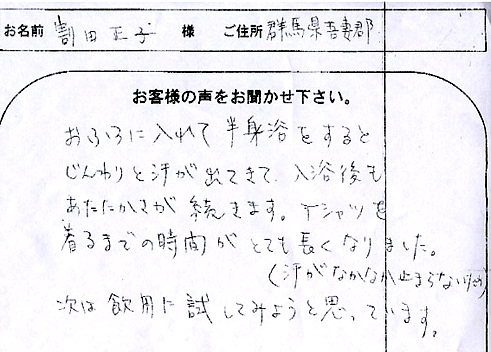 お名前 割田正子 様 ご住所 群馬県吾妻郡
お客様の声をお聞かせ下さい。
おふろに入れて半身浴をすると
じんわりと汗が出てきて、入浴後も
あたたかさが続きます。Tシャツを
着るまでの時間がとても長くなりました。
(汗がなかなか止まらないため)
次は飲用に試してみようと思っています。